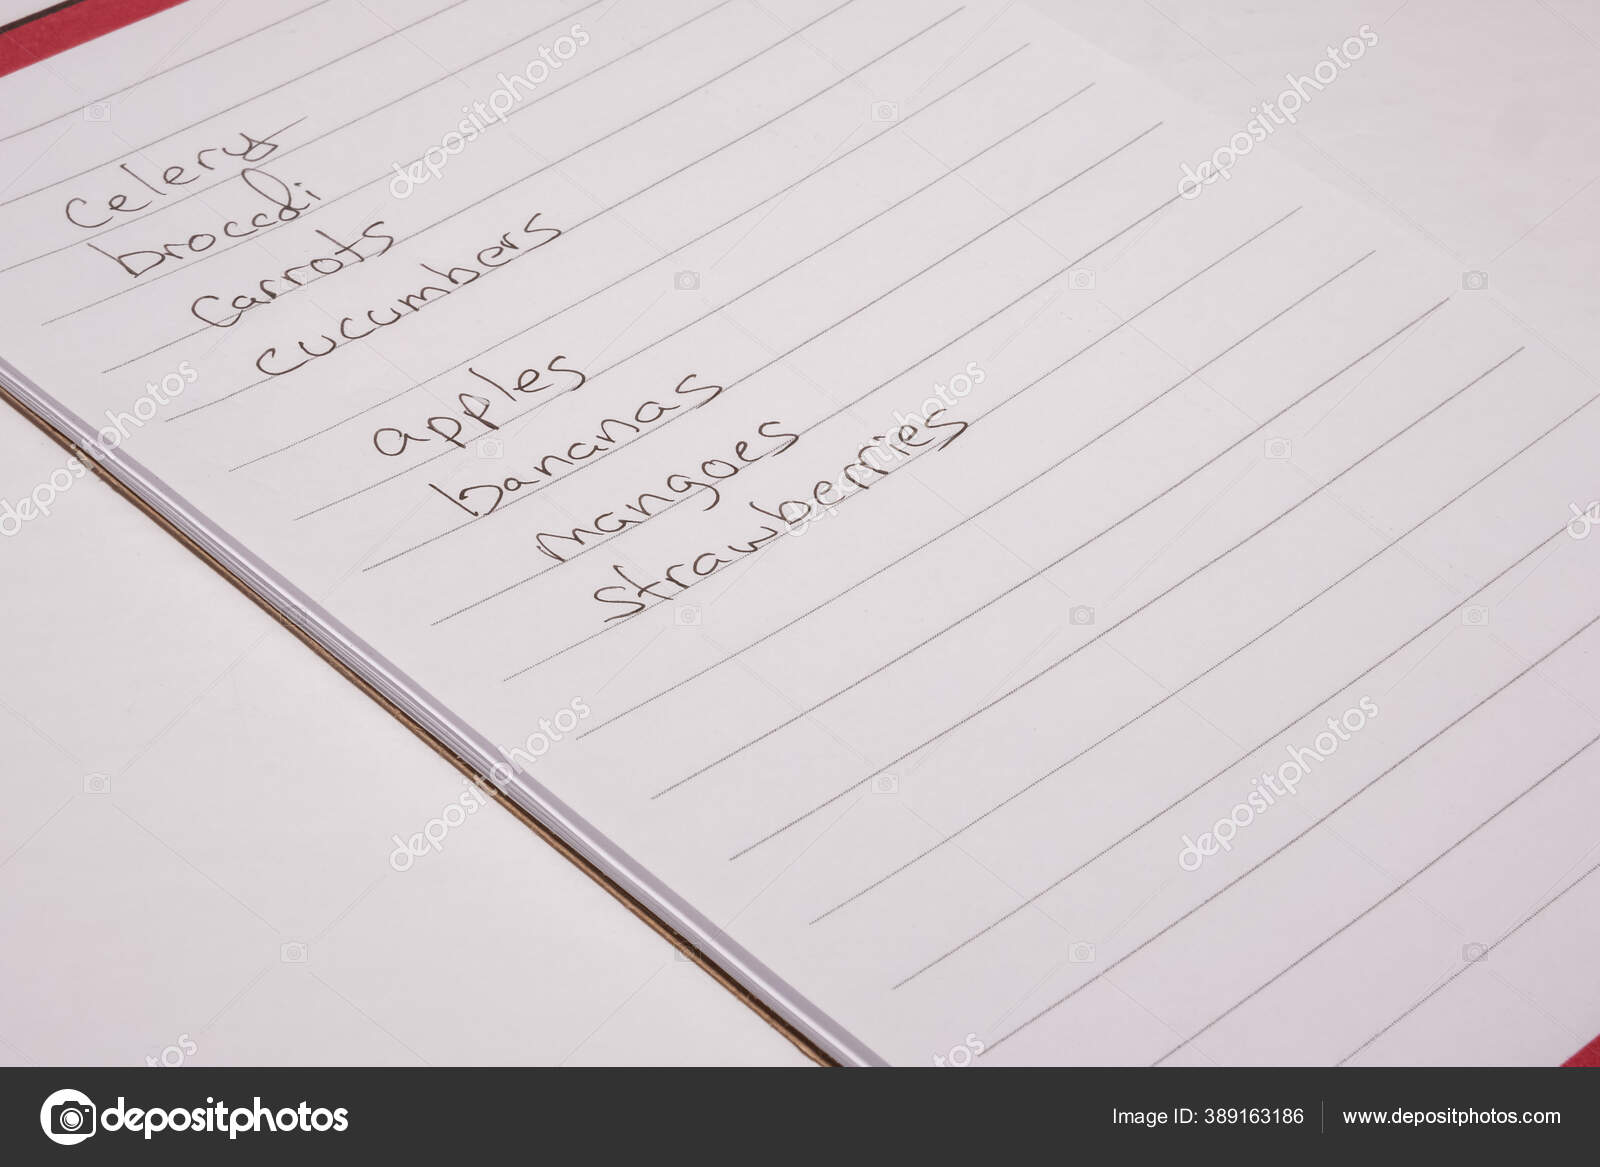 celery
broccoli
carrots
cucumbers
apples
bananas
mangoes
strawberries
depositphotos
Image ID: 389163186
www.depositphotos.com